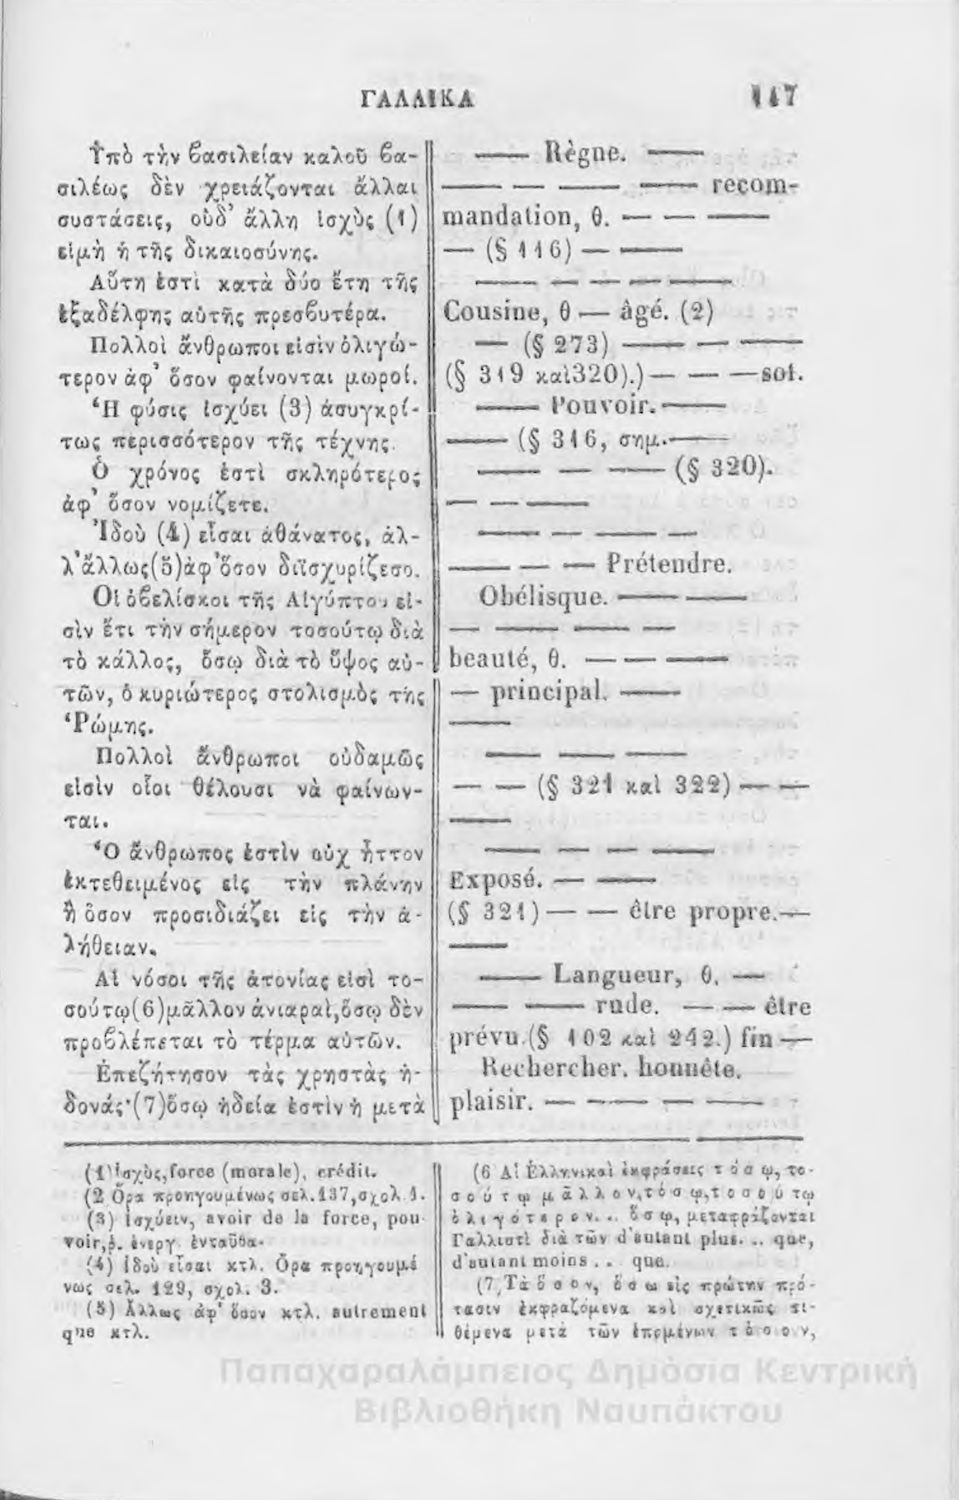 ΓΑΛΛΙΚΑ 147
Ὑπὸ τὴν βασιλείαν καλοῦ βα-
σιλέως δὲν χρειάζονται ἄλλαι
συστάσεις, οὐδ' ἄλλη ἰσχὺς (1)
εἰμὴ ἡ τῆς δικαιοσύνης.
Αὕτη ἐστὶ κατὰ δύο ἔτη τῆς
ἐξαδέλφης αὑτῆς πρεσβυτέρα.
Πολλοὶ ἄνθρωποι εἰσὶν ὀλιγώ-
τερον ἀφ' ὅσον φαίνονται μωροί.
Ἡ φύσις ἰσχύει (3) ἀσυγκρί-
τως περισσότερον τῆς τέχνης.
Ὁ χρόνος ἐστὶ σκληρότερος
ἀφ' ὅσον νομίζετε.
Ἰδοὺ (4) εἶσαι ἀθάνατος, ἀλ-
λ' ἄλλως(5)ἀφ'ὅσον διϊσχυρίζεσο.
Οἱ ὀβελίσκοι τῆς Αἰγύπτου εἰ-
σὶν ἔτι τὴν σήμερον τοσούτῳ διὰ
τὸ κάλλος, ὅσῳ διὰ τὸ ὕψος αὑ-
τῶν, ὁ κυριώτερος στολισμὸς τῆς
Ῥώμης.
Πολλοὶ ἄνθρωποι οὐδαμῶς
εἰσὶν οἷοι θέλουσι νὰ φαίνων-
ται.
Ὁ ἄνθρωπος ἐστὶν οὐχ ἧττον
ἐκτεθειμένος εἰς τὴν πλάνην
ἢ ὅσον προσιδιάζει εἰς τὴν ἀ-
λήθειαν.
Αἱ νόσοι τῆς ἀτονίας εἰσὶ το-
σούτῳ(6)μᾶλλον ἀνιαραὶ,ὅσῳ δὲν
προβλέπεται τὸ τέρμα αὐτῶν.
Ἐπεζήτησον τὰς χρηστὰς ἡ-
δονάς·(7)ὅσῳ ἡδεῖα ἐστὶν ἡ μετὰ
—— Règne. ——
—— — —— —— recom-
mandation, θ. — — ——
— (§ 116) — ——
—— — — ——
Cousine, θ — âgé. (2)
— (§ 273) —— — ——
(§ 319 καὶ320).)— — —sot.
—— Pouvoir. ——
—— (§ 316, σημ. ——
—— — ——(§ 320).
— — ——
—— — —— —
—— — — Prétendre.
Obélisque. —— ——
— —— — ——
beauté, θ. — — ——
— principal. ——
——
—— —— ——
— — (§ 321 καὶ 322) — —
——
—— — — ——
Exposé. — ——
(§ 321)— — être propre.—
——
—— Langueur, θ. —
—— —— rude. — — être
prévu.(§ 102 καὶ 242.) fin —
Rechercher. honnête.
plaisir. — —— — ——
(1)Ἰσχὺς,force (morale), crédit.
(2 Ὅρα προηγουμένως σελ.137,σχολ 1.
(3) Ἰσχύειν, avoir de la force, pou
voir,ῥ. ἐνεργ. ἐνταῦθα·
(4) Ἰδοὺ εἶσαι κτλ. Ὅρα προηγουμέ
νως σελ. 129, σχολ. 3.
(5) Ἄλλως ἀφ' ὅσον κτλ. autrement
que κτλ.
(6 Αἱ Ἑλληνικαὶ ἐκφράσεις τόσῳ, το-
σούτῳ μᾶλλον,τόσῳ,τοσούτῳ
ὀλιγότερον... ὅσῳ, μεταφράζονται
Γαλλιστὶ διὰ τῶν d'autant plus... que,
d'autant moins .. que.
(7 Τὰ ὅσον, ὅσῳ εἰς πρώτην πρό-
τασιν ἐκφραζόμενα καὶ σχετικῶς τι-
θέμενα μετὰ τῶν ἑπομένων τόσον,
Παπαχαραλάμπειος Δημόσια Κεντρική
Βιβλιοθήκη Ναυπάκτου